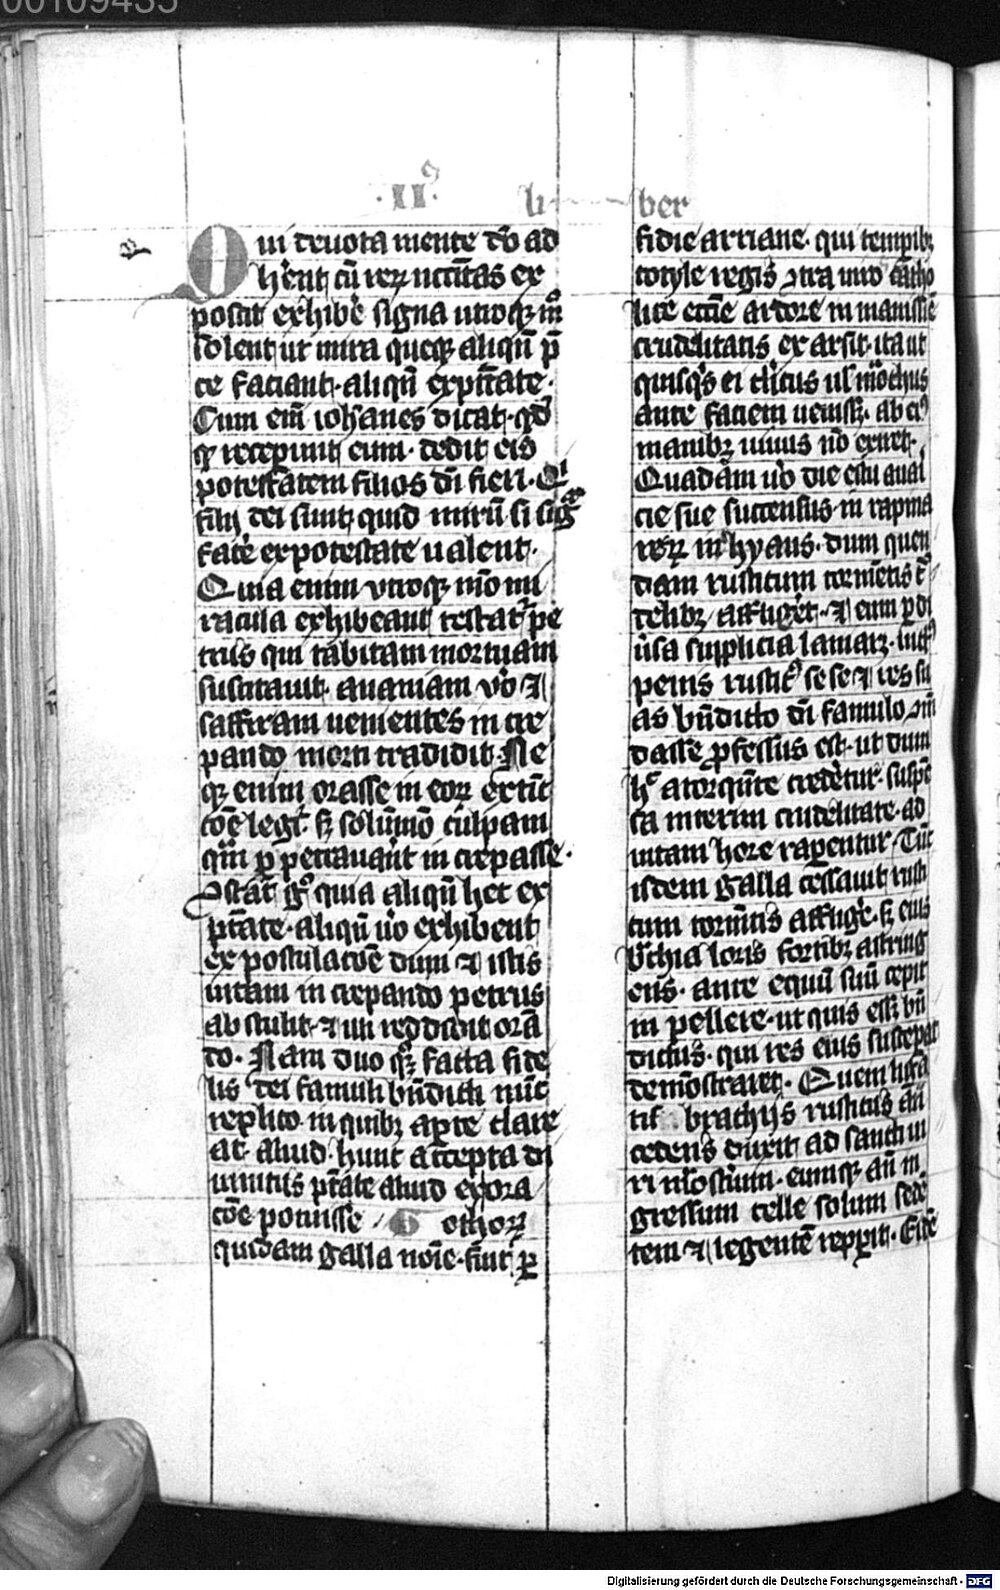 00109435
·II⁹· li ber
Qui deuota mente dō ad
hērent cū rerū necc̄itas ex
poscit exhibēr signa utroq; mō
solent ut mira queq; aliqn̄ p̄
ce faciant· aliqn̄ ex ptāte·
Cum eni iohānes dicat· qd̄
q̄ recepunt eum· dedit eis
potestatem filios dī fieri· Qi
filij dei sunt quid mirū si sig̅
facēr ex potestate ualent·
Quia enim utroq; mō mi
racula exhibeant testat pe
trus qui tabitam mortuam
suscitauit· ananiam v̄o ⁊
saffiram uenientes in cre
pando morti tradidit· Ne
q; enim orasse in eorū extīc
tōe legit· sȝ solūmō culpam
qm̄ ꝑ petrauant in crepasse·
Cstat g° quia aliqn̄ hec ex
ptāte· aliqn̄ u̅o exhibent
ex postulacōe dum ⁊ istis
uitam in crepando petrus
abstulit· ⁊ illi reddidit orā
do· Nam duo qȝ facta fide
lis dei famuli bn̄dicti nūc
replico· in quibȝ apte claret
at· aliud· hunc accepta di
uinitus ptāte aliud ex ora
cōe potuisse / Gothorū
quidam galla noīe· fuit ꝑ
fidie arriane· qui tempibȝ
totyle regis ɔtra uiro catho
lice ecctie ardore in manissīe
crudelitatis ex arsit· ita ut
quisq̄s ei clicus ul̄ mōchus
ante faciem uenissȝ· ab ei⁹
manibȝ uiuus nō exiret·
Quadam u̅o die estu auai
cie sue succensus· in rapina
rerū in hyans· dum quen
dam rusticum tormētis c̄
delibȝ affligēt· ⁊ eum ꝑ di
u̅sa supplicia laniarȝ· uict⁹
penis rustic⁹ se se ⁊ res su
as bn̄dicto dī famulo ɔm̄
dasse ꝓfessus est· ut dum
h̄ a torquēte credetur· suspē
sa interim crudelitate· ad
uitam hore raperentur· Tūc
isdem galla cessauit rusti
cum tormētis affligēr· sȝ eius
brachia loris fortibȝ astring
ens· ante equū suū cepit
in pellere· ut quis essȝ bn̄
dictus· qui res eius suscepat
demōstraret· Quem ligā
tis brachijs rusticus an̄
cedens duxit ad sancti ui
ri mōsterium· eumq; an̄ in
gressum celle solum sedē
tem ⁊ legentē reppit· Eidē
Digitalisierung gefördert durch die Deutsche Forschungsgemeinschaft - DFG